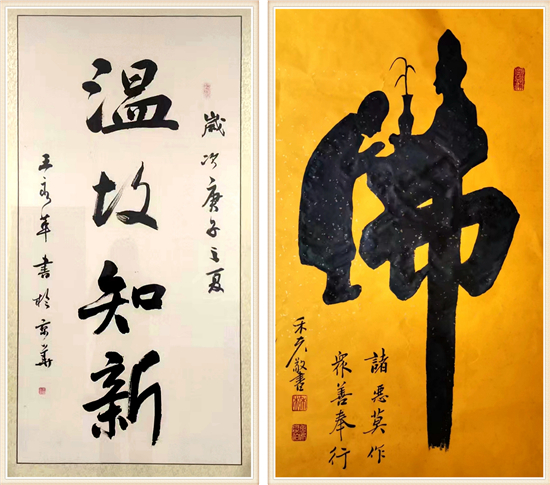 歲次庚子之夏
温故知新
王書於京華
佛
諸惡莫作
眾善奉行
敬書